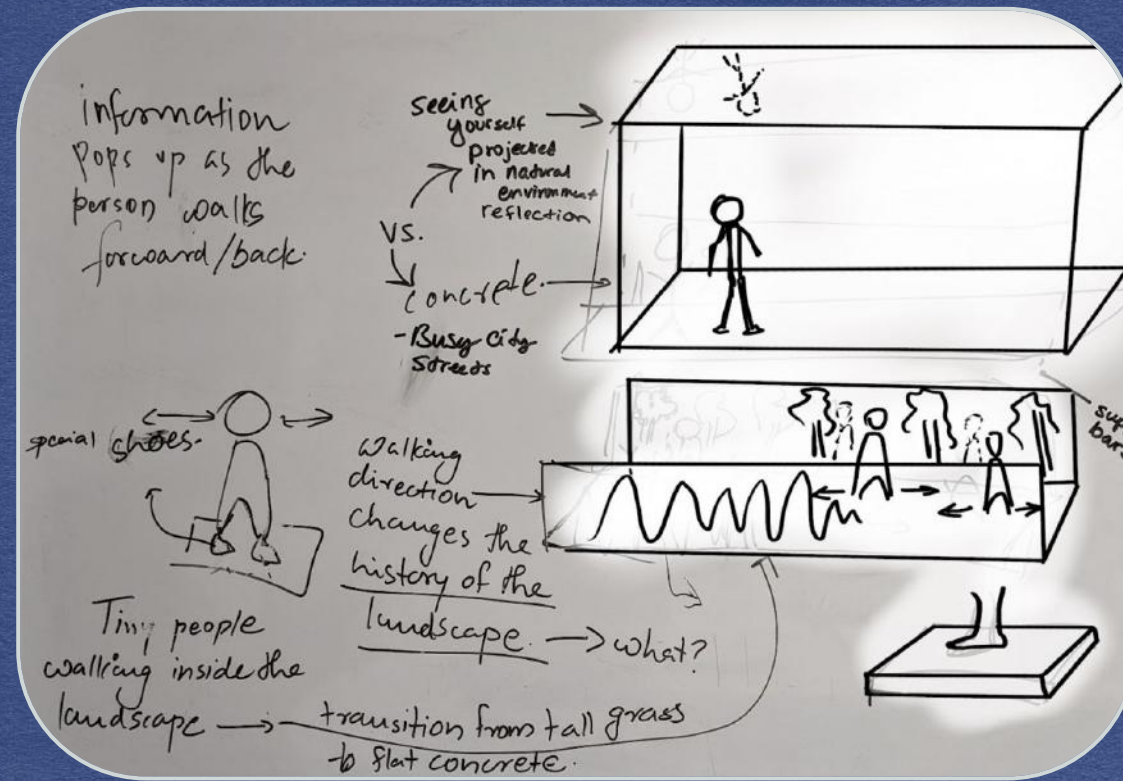 information
Pops up as the
person walks
forward/back.
seeing
yourself
projected
in natural
environment
reflection
vs.
concrete.
-Busy City
Streets
special shoes.
walking
direction
changes the
history of the
landscape. → what?
Tiny people
walking inside the
landscape → transition from tall grass
to flat concrete.